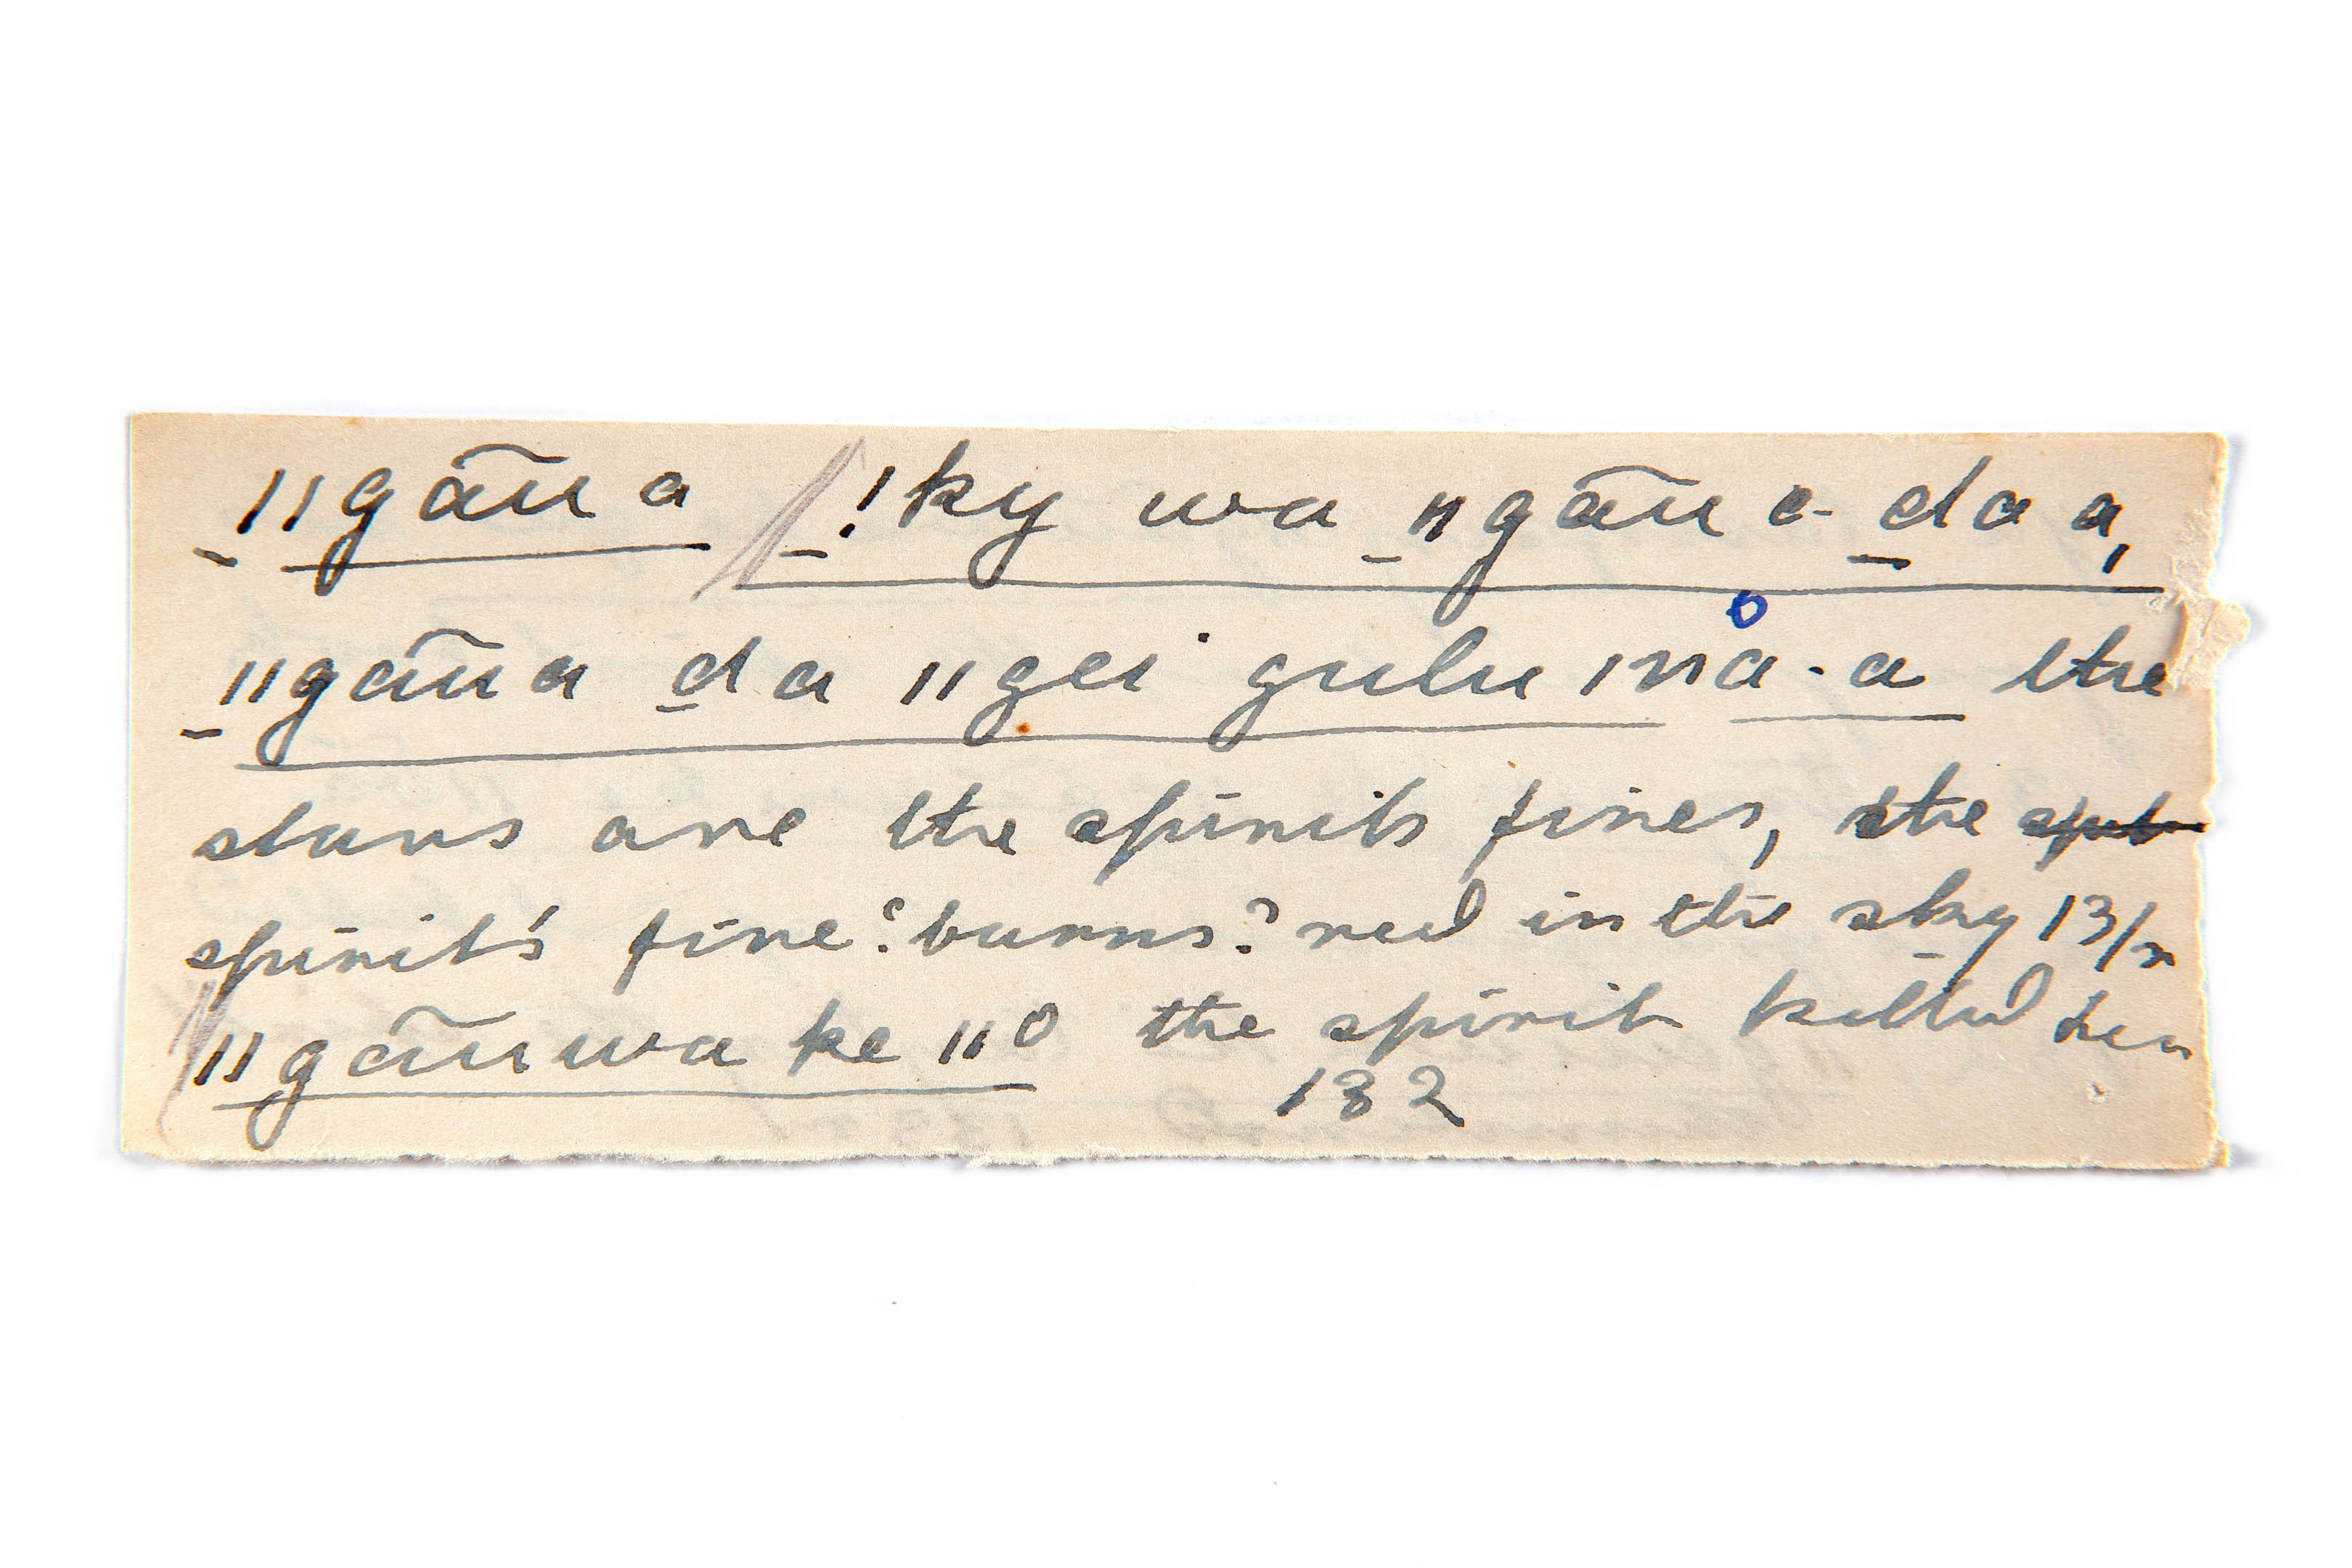 ǁgāūa !ky wa ǁgāūa-daa,
ǁgāūa da ǁgei gulu ǀnå-a the
stars are the spirits fires, the
spirit's fire? burns? red in the sky 13/
ǁgāūwa ke ǁo the spirit killed her
132